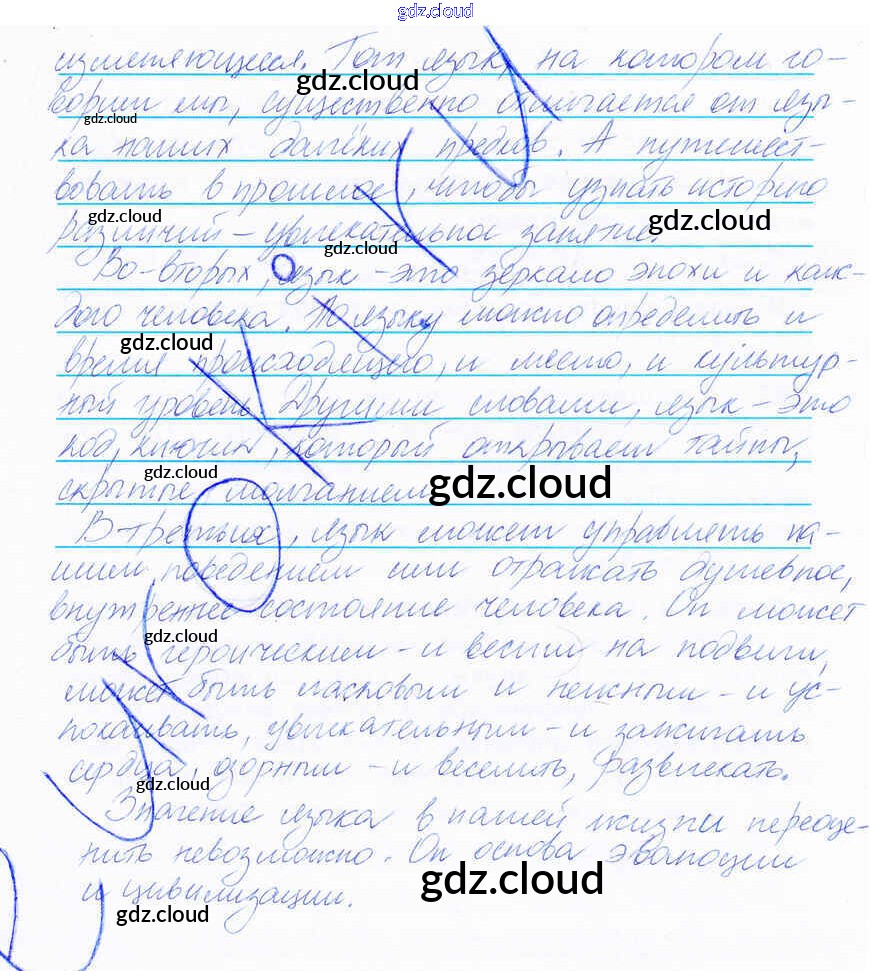 gdz.cloud
изменяющееся. Тот язык, на котором го-
ворим мы, существенно отличается от язы-
ка наших далёких предков. А путешест-
вовать в прошлое, чтобы узнать историю
различий – увлекательное занятие.
Во-вторых, язык – это зеркало эпохи и каж-
дого человека. По языку можно определить и
время происходящего, и место, и культур-
ный уровень. Другими словами, язык – это
код, ключик, который открывает тайны,
скрытые молчанием.
В-третьих, язык может управлять на-
шим поведением или отражать душевное,
внутреннее состояние человека. Он может
быть героическим – и вести на подвиги,
может быть ласковым и нежным – и ус-
покаивать, увлекательным – и зажигать
сердца, озорным – и веселить, развлекать.
Значение языка в нашей жизни переоце-
нить невозможно. Он основа эволюции
и цивилизации.
gdz.cloud
gdz.cloud
gdz.cloud
gdz.cloud
gdz.cloud
gdz.cloud
gdz.cloud
gdz.cloud
gdz.cloud
gdz.cloud
gdz.cloud
gdz.cloud